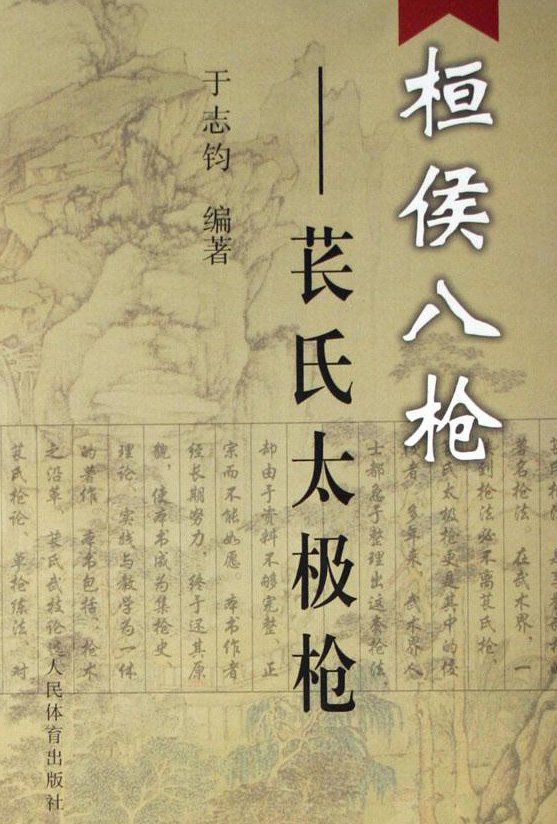 桓侯八枪
——苌氏太极枪
于志钧 编著
著名枪法。在武术界，一
到枪法必不离苌氏枪，
氏太极枪更是其中的佼
者。多年来，武术界人
士都急于整理出这套枪法，
却由于资料不够完整，正
宗而不能如愿。本书作者
经长期努力，终于还其原
貌，使本书成为集枪史、
理论、实践与教学为一体
的著作。本书包括：枪术
之沿革、苌氏武技论
苌氏枪论、单枪练法、对
人民体育出版社